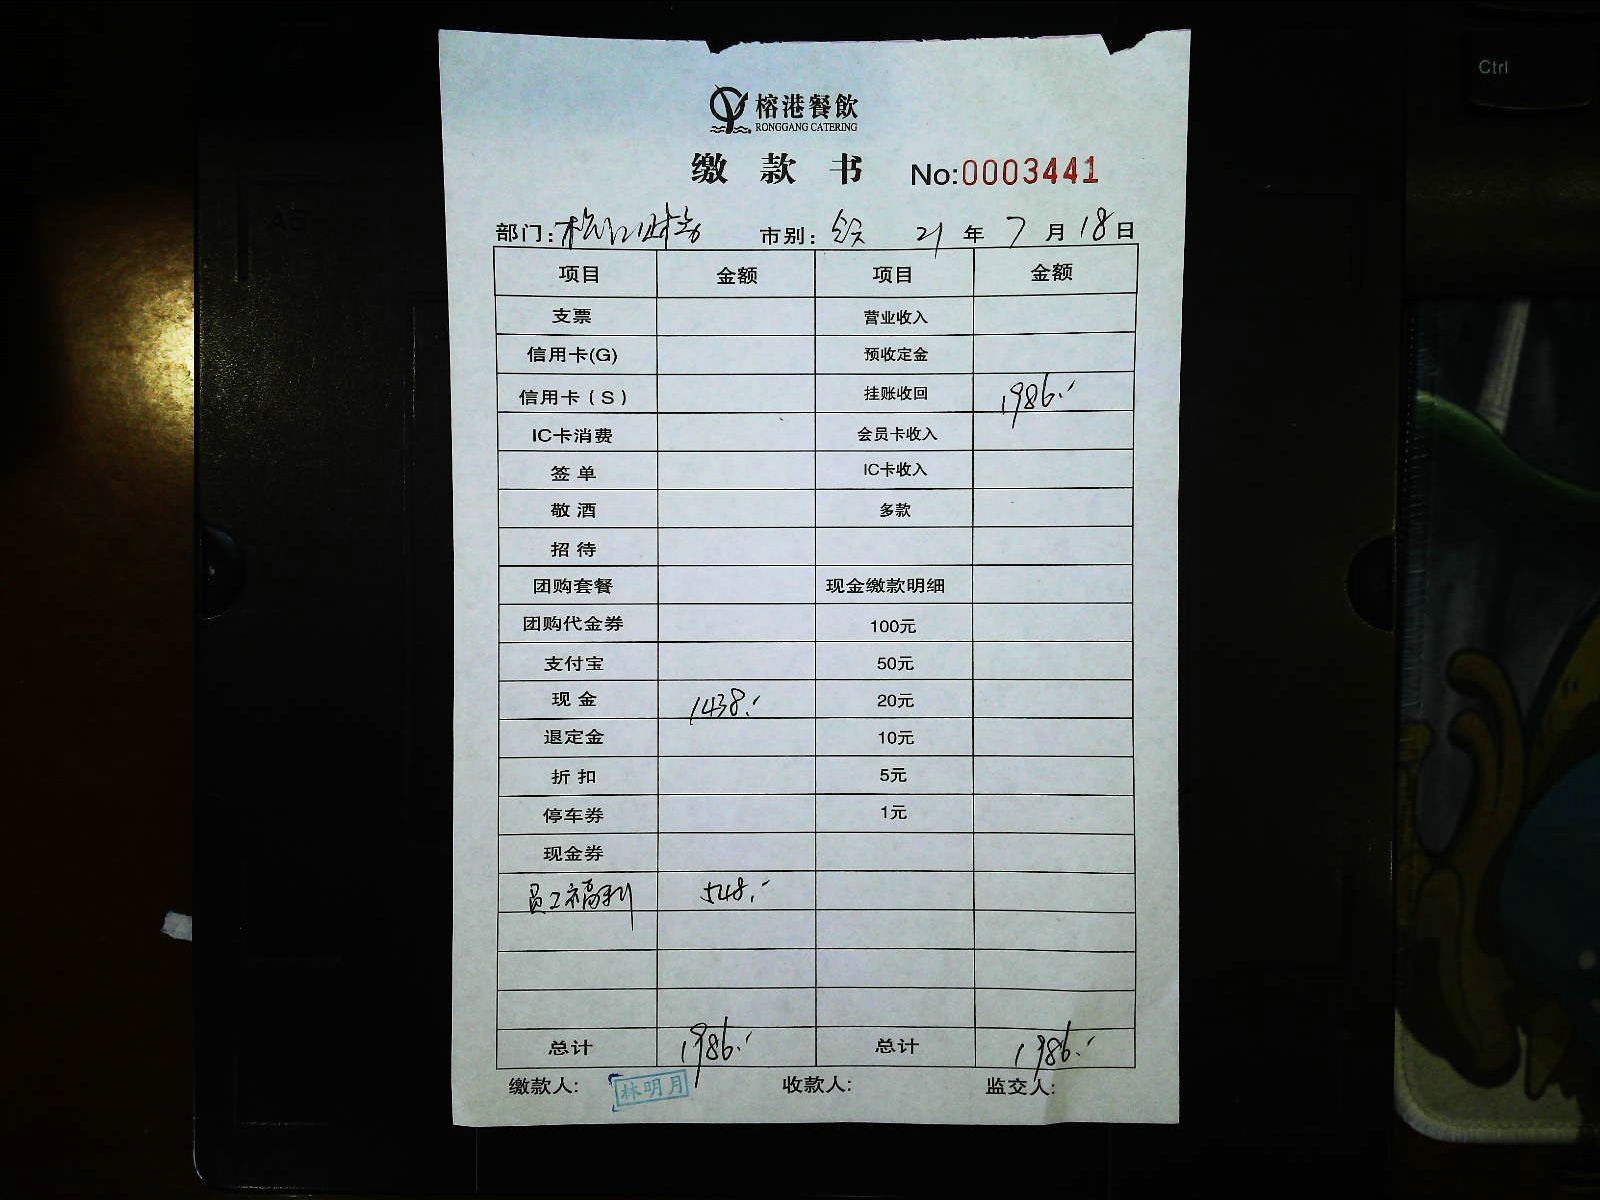 Ctrl
榕港餐飲
RONGGANG CATERING
缴款书 No:0003441
部门:松江财务 市别:全天 21年7月18日
项目 金额 项目 金额
支票 营业收入
信用卡(G) 预收定金
信用卡(S) 挂账收回 1986.-
IC卡消费 会员卡收入
签单 IC卡收入
敬酒 多款
招待
团购套餐 现金缴款明细
团购代金券 100元
支付宝 50元
现金 1438.- 20元
退定金 10元
折扣 5元
停车券 1元
现金券
员工福利 548.-
总计 1986.- 总计 1986.-
缴款人: 林明月 收款人: 监交人: